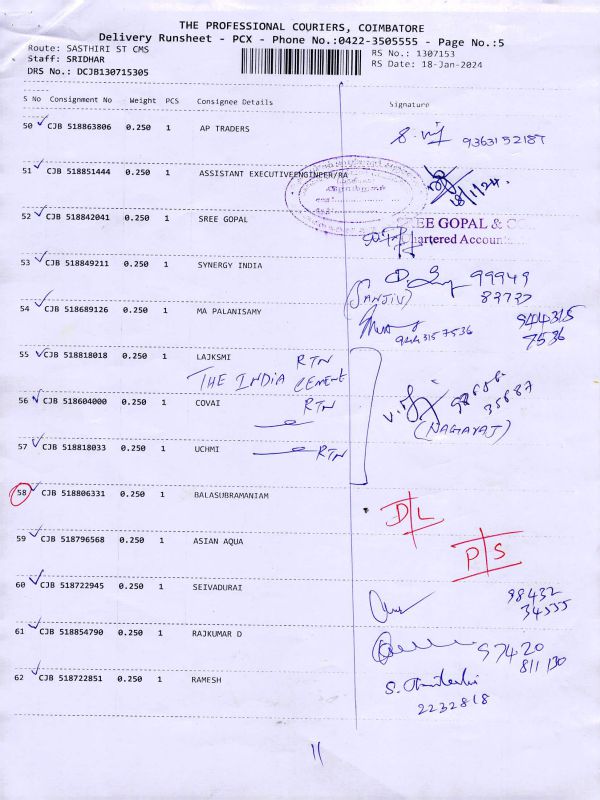 THE PROFESSIONAL COURIERS, COIMBATORE
Delivery Runsheet - PCX - Phone No.:0422-3505555 - Page No.:5
Route: SASTHIRI ST CMS RS No.: 1307153
Staff: SRIDHAR RS Date: 18-Jan-2024
DRS No.: DCJB130715305
S No Consignment No Weight PCS Consignee Details Signature
50 CJB 518863806 0.250 1 AP TRADERS
51 CJB 518851444 0.250 1 ASSISTANT EXECUTIVEENGINEER/RA 18/1/24.
52 CJB 518842041 0.250 1 SREE GOPAL SREE GOPAL & CO
Chartered Accoun
53 CJB 518849211 0.250 1 SYNERGY INDIA 99949
(SANJIV)
54 CJB 518689126 0.250 1 MA PALANISAMY 944315
9443157536 7536
55 CJB 518818018 0.250 1 LAJKSMI RTN
THE INDIA CEMENT
56 CJB 518604000 0.250 1 COVAI RTN 35687
(NAGARAJ)
57 CJB 518818033 0.250 1 UCHMI RTN
58 CJB 518806331 0.250 1 BALASUBRAMANIAM D/L
59 CJB 518796568 0.250 1 ASIAN AQUA P/S
60 CJB 518722945 0.250 1 SEIVADURAI 98432
34555
61 CJB 518854790 0.250 1 RAJKUMAR D 97420
811 130
62 CJB 518722851 0.250 1 RAMESH
2232818
11